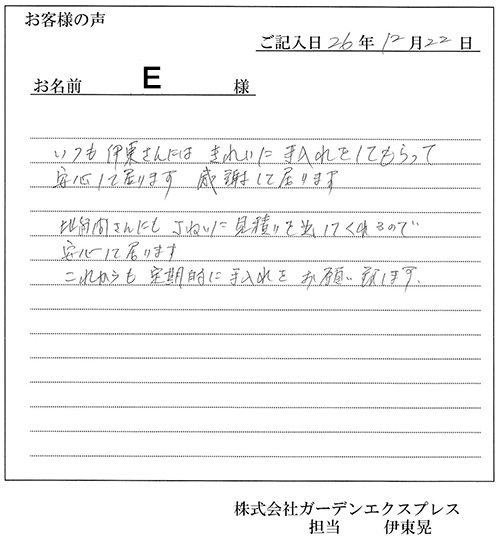 お客様の声
ご記入日 26年 12月 22日
お名前 E 様
いつも伊東さんには きれいに 手入れをしてもらって
安心して居ります 感謝して居ります
さんにも ていねいに見積りを出してくれるので
安心して居ります
これからも 定期的に手入れを お願い致します.
株式会社ガーデンエクスプレス
担当 伊東晃